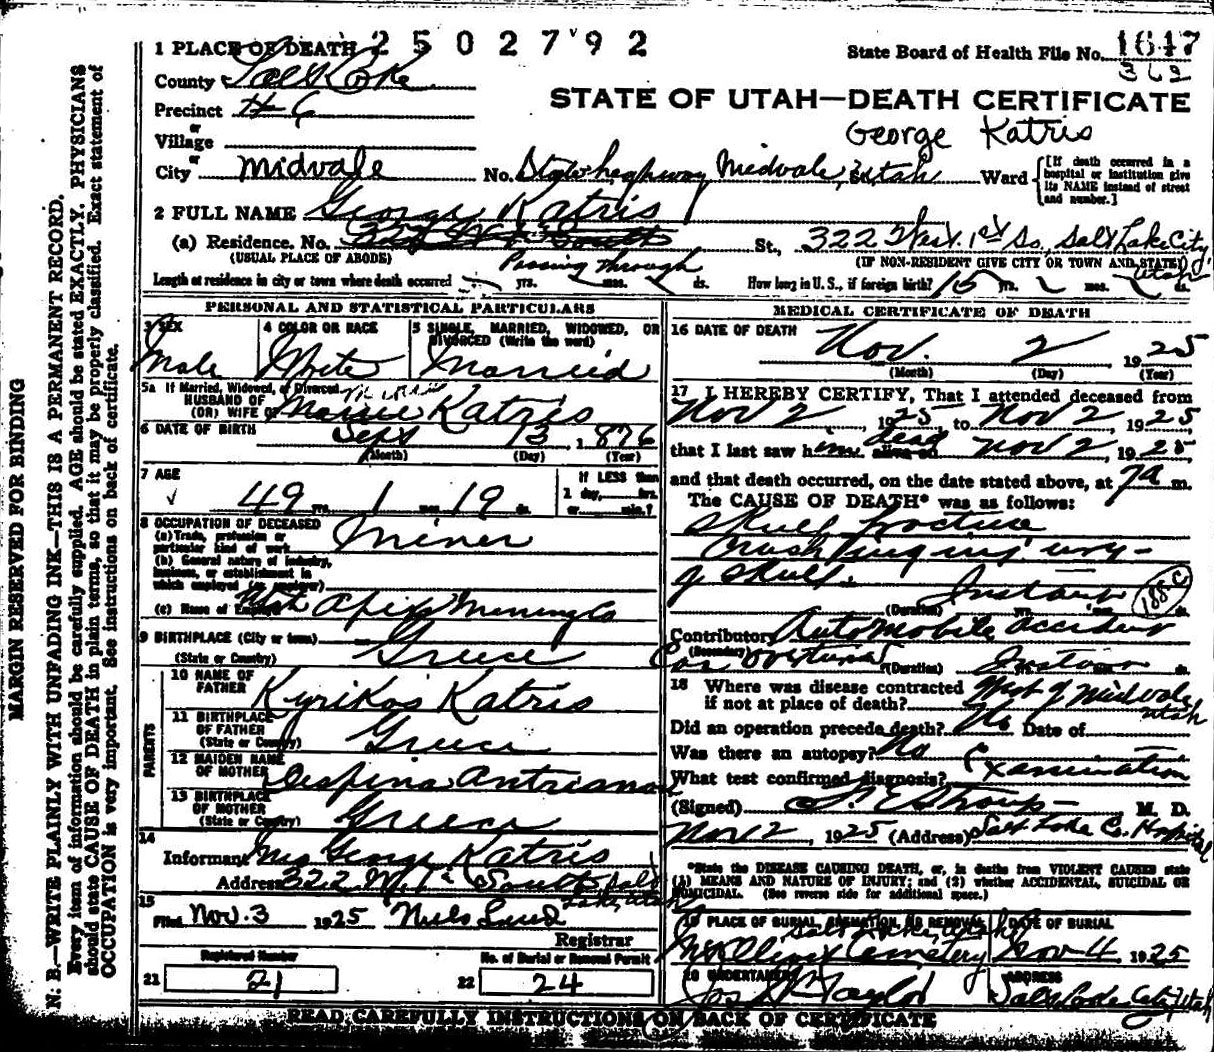 1 PLACE OF DEATH 2502792
State Board of Health File No. 1647
362
County Salt Lake
Precinct # 6
STATE OF UTAH—DEATH CERTIFICATE
George Katris
or
Village
or
City Midvale No. State highway Midvale, Utah Ward
[If death occurred in a hospital or institution give its NAME instead of street and number.]
2 FULL NAME George Katris
(a) Residence. No. 322 W 1st South St., 322 West. 1st So. Salt Lake City, Utah
(USUAL PLACE OF ABODE) (IF NON-RESIDENT GIVE CITY OR TOWN AND STATE)
Passing through
Length of residence in city or town where death occurred yrs. mos. ds. How long in U. S., if foreign birth? 15 yrs. mos. ds.
PERSONAL AND STATISTICAL PARTICULARS
3 SEX
Male
4 COLOR OR RACE
White
5 SINGLE, MARRIED, WIDOWED, OR DIVORCED (Write the word)
Married
5a If Married, Widowed, or Divorced
HUSBAND OF
(OR) WIFE OF Katris
6 DATE OF BIRTH Sept 13, 1876
(Month) (Day) (Year)
7 AGE
49 yrs. 1 mos. 19 ds.
If LESS than
1 day, hrs.
or min.?
8 OCCUPATION OF DECEASED
(a) Trade, profession or particular kind of work Miner
(b) General nature of Industry, business, or establishment in which employed (or employer)
(c) Name of Employer Utah Apex Mining Co
9 BIRTHPLACE (City or town)
(State or Country) Greece
PARENTS
10 NAME OF FATHER Kyrikos Katris
11 BIRTHPLACE OF FATHER
(State or Country) Greece
12 MAIDEN NAME OF MOTHER Despina
13 BIRTHPLACE OF MOTHER
(State or Country) Greece
14
Informant Mrs George Katris
Address 322 W. 1st South Salt Lake, Utah
15
Filed Nov. 3 1925 Niels Lind
Registrar
Registered Number
21 21
No. of Burial or Removal Permit
22 24
MEDICAL CERTIFICATE OF DEATH
16 DATE OF DEATH
Nov. 2 1925
(Month) (Day) (Year)
17 I HEREBY CERTIFY, That I attended deceased from
Nov 2, 1925, to Nov 2, 1925
that I last saw him dead alive on Nov 2, 1925
and that death occurred, on the date stated above, at 7 a m.
The CAUSE OF DEATH* was as follows:
Skull fracture
Crushing injury
of skull.
(Duration) yrs. mos. ds.
188c
Contributory Automobile accident
(Secondary) Car overturned
(Duration)
18 Where was disease contracted
if not at place of death? West of Midvale Utah
Did an operation precede death? No Date of
Was there an autopsy? No
What test confirmed diagnosis? Examination
(Signed) M. D.
Nov 2, 1925 (Address) Salt Lake Co. Hospital
*State the DISEASE CAUSING DEATH, or, in deaths from VIOLENT CAUSES state (1) MEANS AND NATURE OF INJURY; and (2) whether ACCIDENTAL, SUICIDAL OR HOMICIDAL. (See reverse side for additional space.)
19 PLACE OF BURIAL, CREMATION, OR REMOVAL
Salt Lake, Utah
Mt Olivet Cemetery
DATE OF BURIAL
Nov 4 1925
20 UNDERTAKER
Taylor
ADDRESS
Salt Lake City, Utah
READ CAREFULLY INSTRUCTIONS ON BACK OF CERTIFICATE
MARGIN RESERVED FOR BINDING
N. B.—WRITE PLAINLY WITH UNFADING INK—THIS IS A PERMANENT RECORD.
Every item of information should be carefully supplied. AGE should be stated EXACTLY. PHYSICIANS
should state CAUSE OF DEATH in plain terms, so that it may be properly classified. Exact statement of
OCCUPATION is very important. See instructions on back of certificate.